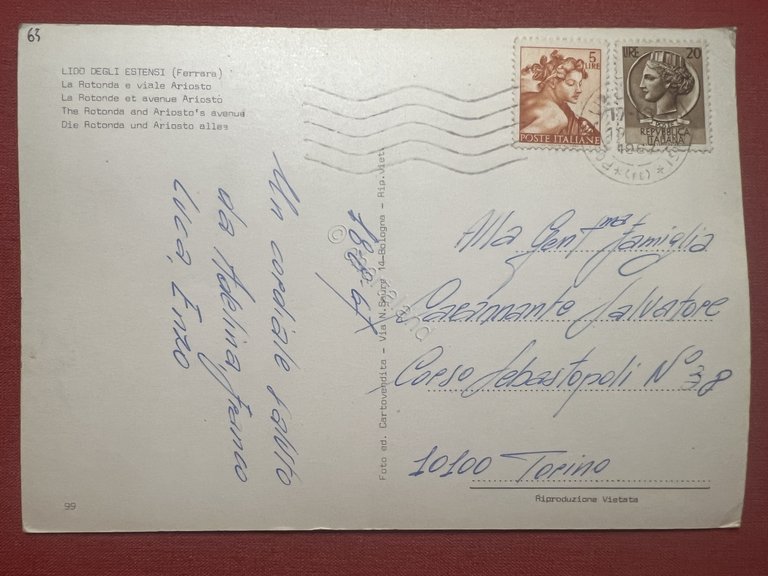 63
LIDO DEGLI ESTENSI (Ferrara)
La Rotonda e viale Ariosto
La Rotonde et avenue Ariosto
The Rotonda and Ariosto's avenue
Die Rotonda und Ariosto allee
5
LIRE
POSTE ITALIANE
LIRE 20
REPVBBLICA
ITALIANA
Un cordiale saluto
da Adelina Franco
Luca, Enzo
Foto ed. Cartovendita - Via N. Sauro 14-Bologna - Rip. Viet.
Alla Gent.ma Famiglia
Carannante Salvatore
Corso Sebastopoli N° 38
10100 Torino
Riproduzione Vietata
99